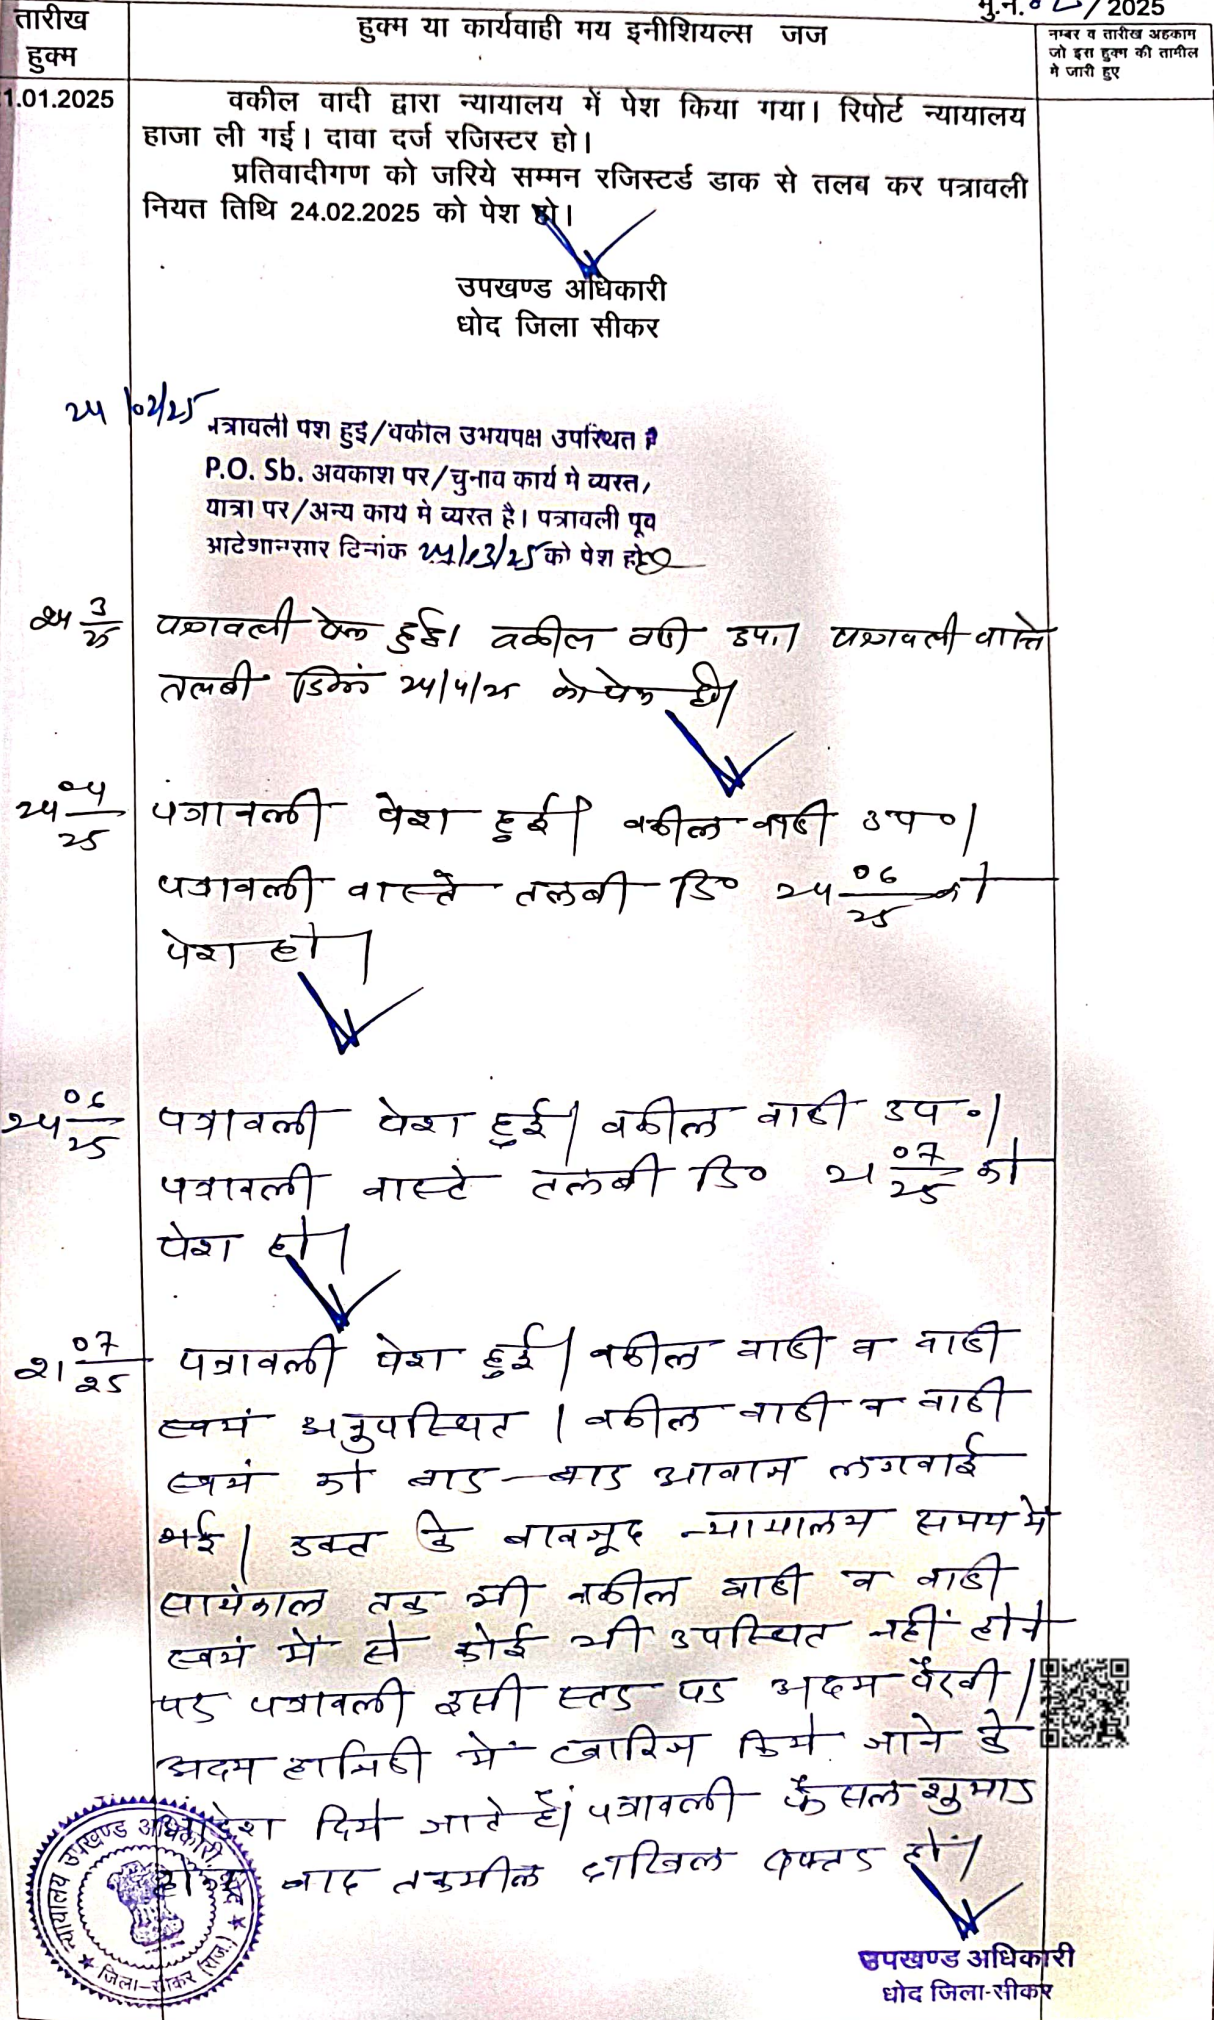 मु.न. / 2025
तारीख
हुक्म
हुक्म या कार्यवाही मय इनीशियल्स जज
नम्बर व तारीख अहकाम
जो इस हुक्म की तामील
मे जारी हुए
1.01.2025
वकील वादी द्वारा न्यायालय में पेश किया गया। रिपोर्ट न्यायालय
हाजा ली गई। दावा दर्ज रजिस्टर हो।
प्रतिवादीगण को जरिये सम्मन रजिस्टर्ड डाक से तलब कर पत्रावली
नियत तिथि 24.02.2025 को पेश हो।
उपखण्ड अधिकारी
धोद जिला सीकर
24/02/25
पत्रावली पेश हुई/वकील उभयपक्ष उपस्थित है
P.O. Sb. अवकाश पर/चुनाव कार्य मे व्यस्त,
यात्रा पर/अन्य कार्य मे व्यस्त है। पत्रावली पूर्व
आदेशानुसार दिनांक 24/03/25 को पेश हो
24 3/25 पत्रावली पेश हुई। वकील वादी उप.। पत्रावली वास्ते
तलबी दिनांक 24/4/25 को पेश हो।
24 04/25 पत्रावली पेश हुई। वकील वादी उप०।
पत्रावली वास्ते तलबी दि० 24 06/25 को
पेश हो।
24 06/25 पत्रावली पेश हुई। वकील वादी उप०।
पत्रावली वास्ते तलबी दि० 21 07/25 को
पेश हो।
21 07/25 पत्रावली पेश हुई। वकील वादी व वादी
स्वयं अनुपस्थित। वकील वादी व वादी
स्वयं को बार-बार आवाज लगवाई
गई। उक्त के बावजूद न्यायालय समय में
सायंकाल तक भी वकील वादी व वादी
स्वयं में से कोई भी उपस्थित नहीं होने
पर पत्रावली इसी स्तर पर अदम पैरवी।
अदम हाजिरी में खारिज किये जाने के
आदेश दिये जाते हैं। पत्रावली फैसल शुमार
होकर बाद तकमील दाखिल दफ्तर हो।
न्यायालय उपखण्ड अधिकारी, धोद
जिला-सीकर (राज.)
उपखण्ड अधिकारी
धोद जिला-सीकर